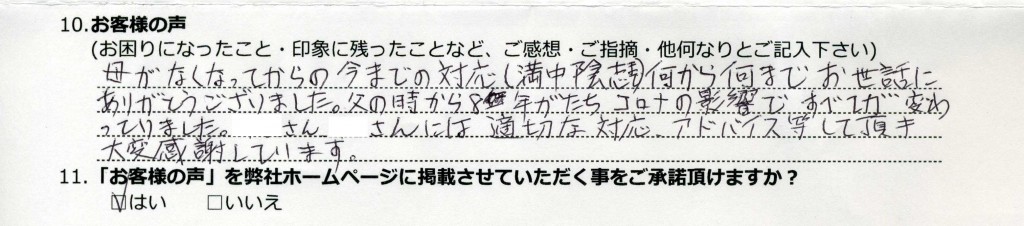 10.お客様の声
(お困りになったこと・印象に残ったことなど、ご感想・ご指摘・他何なりとご記入下さい)
母がなくなってからの今までの対応(満中陰志)何から何までお世話に
ありがとうございました。父の時から8年がたちコロナの影響ですべてが変わ
っていました。 さん さんには適切な対応、アドバイス等して頂き
大変感謝しています。
11.「お客様の声」を弊社ホームページに掲載させていただく事をご承諾頂けますか？
☑はい □いいえ